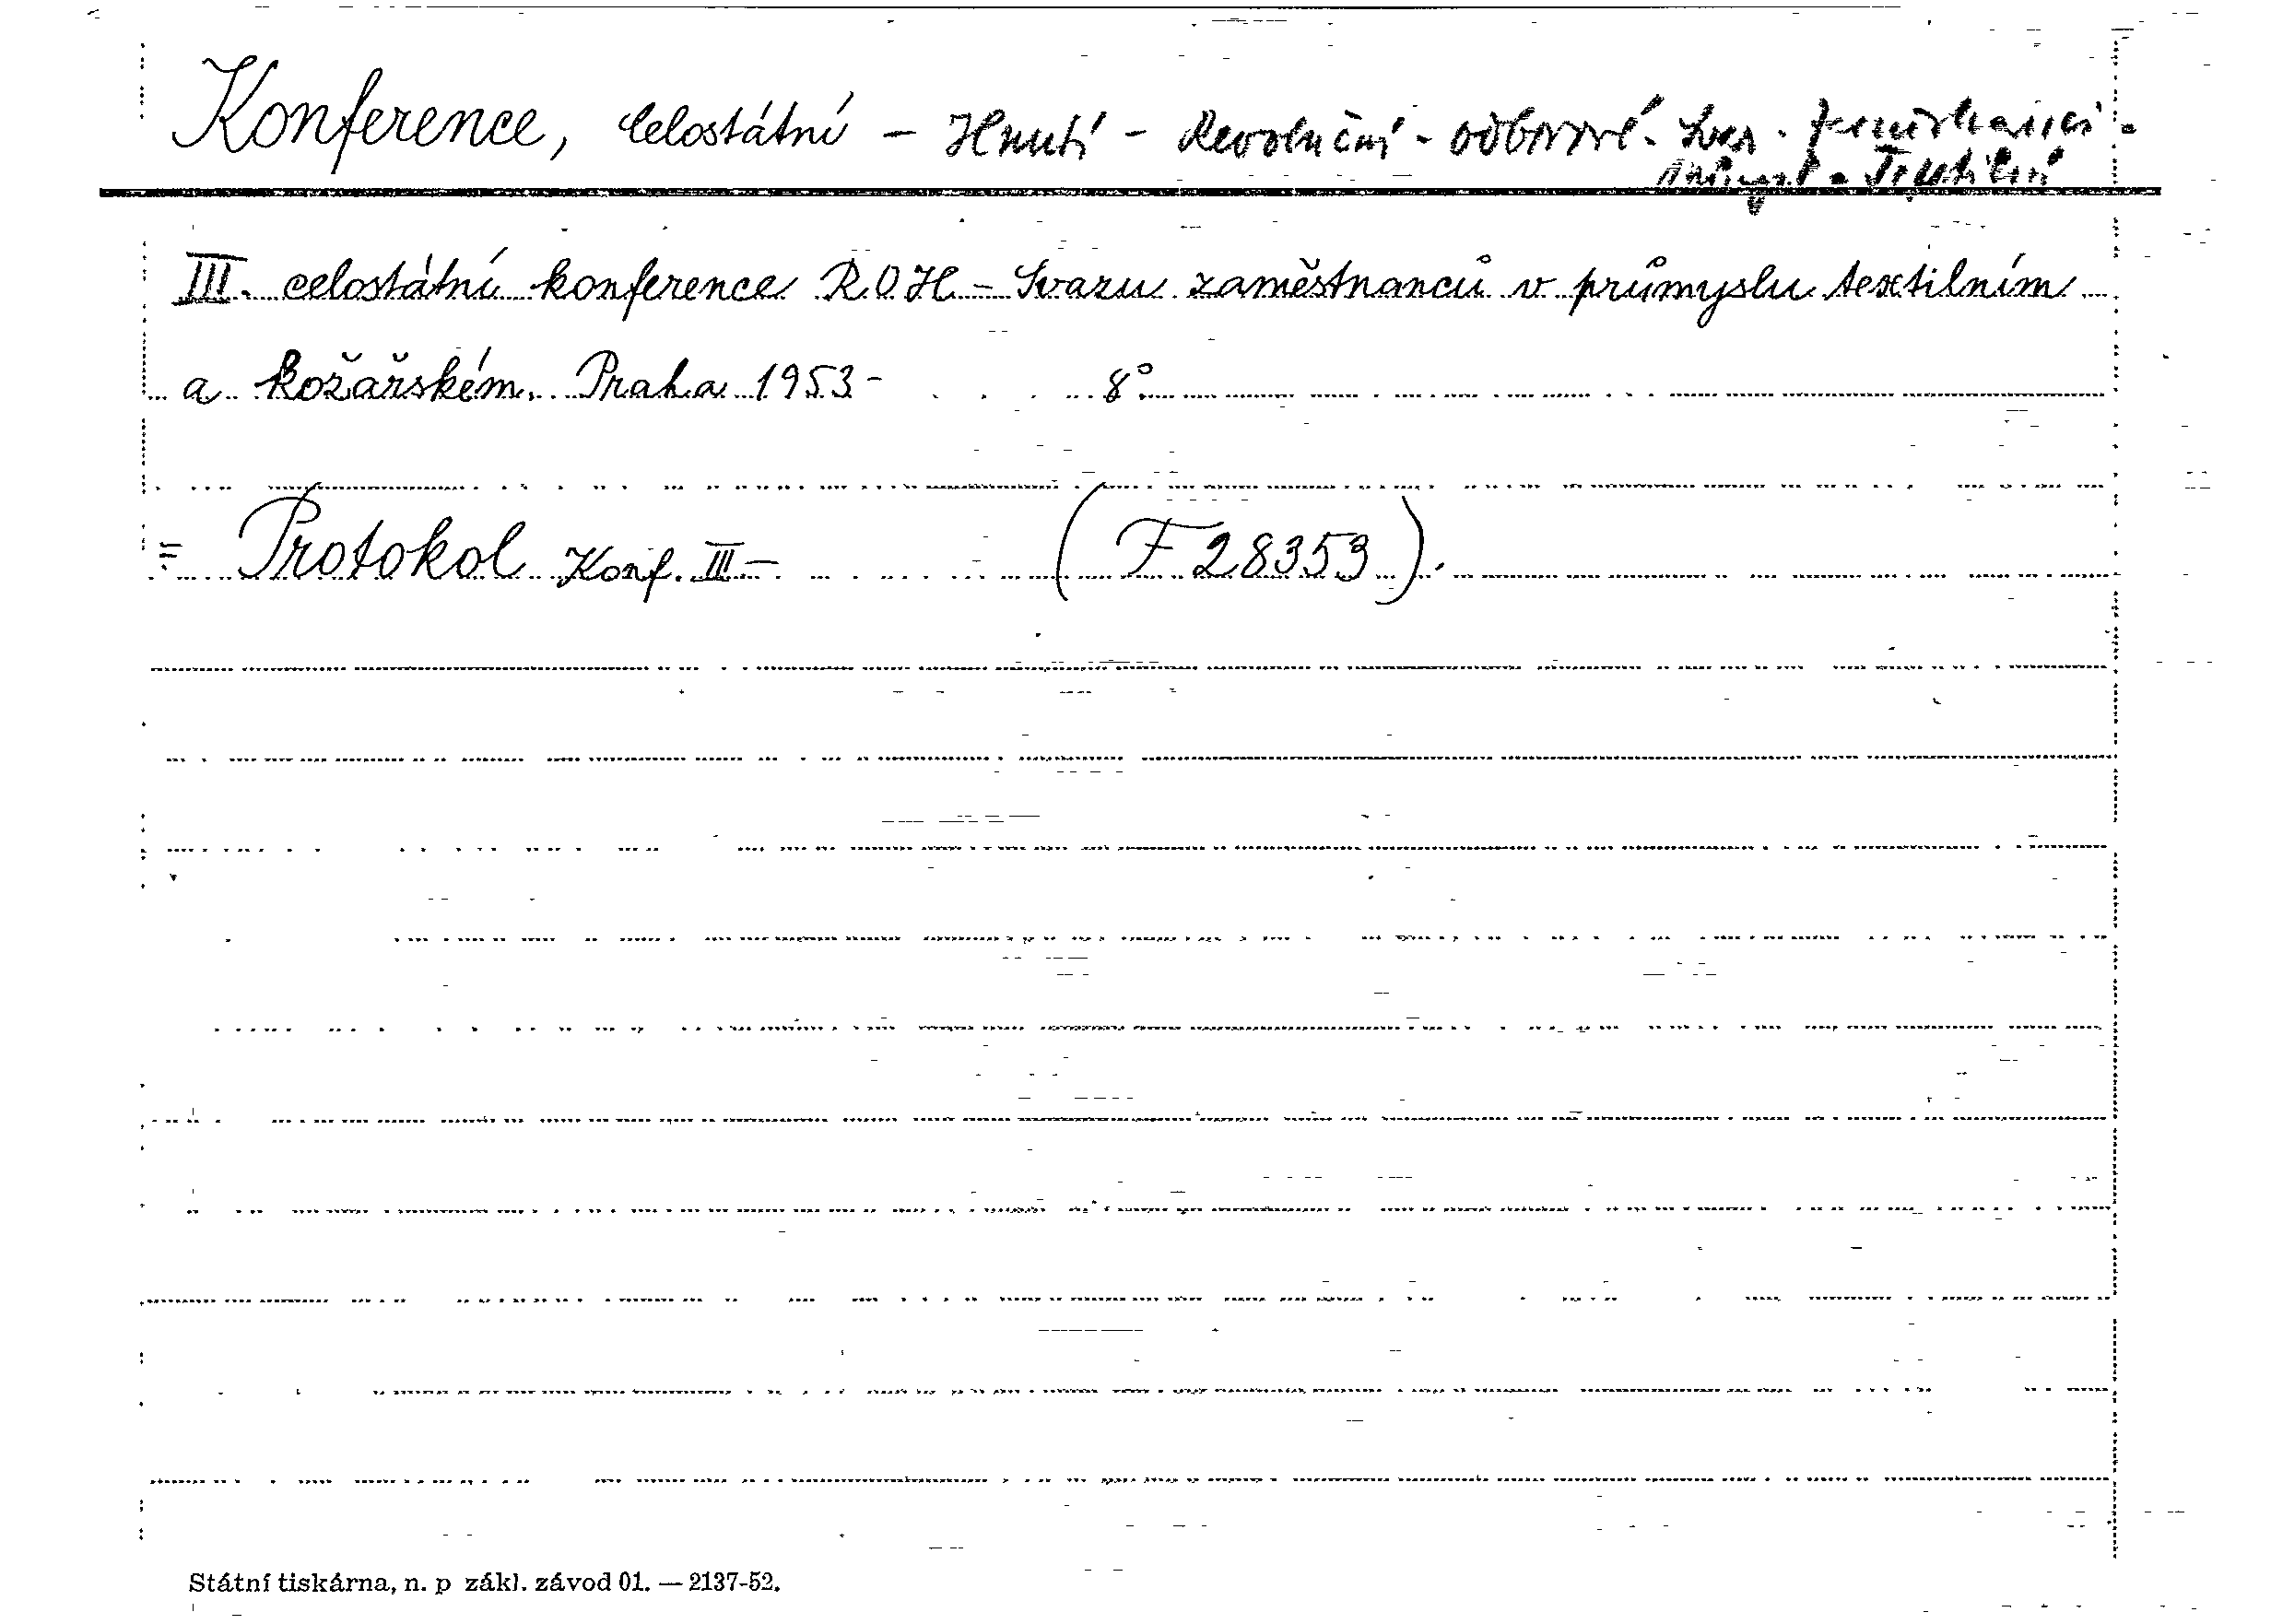 Konference, celostátní - Hnutí - Revoluční - odborové - Svaz - zaměstnanci -
průmysl - Textilní
III. celostátní konference ROH - Svazu zaměstnanců v průmyslu textilním
a kožařském. Praha 1953- 8°.
= Protokol Konf. III- (F 28353).
Státní tiskárna, n. p zákl. závod 01. — 2137-52.